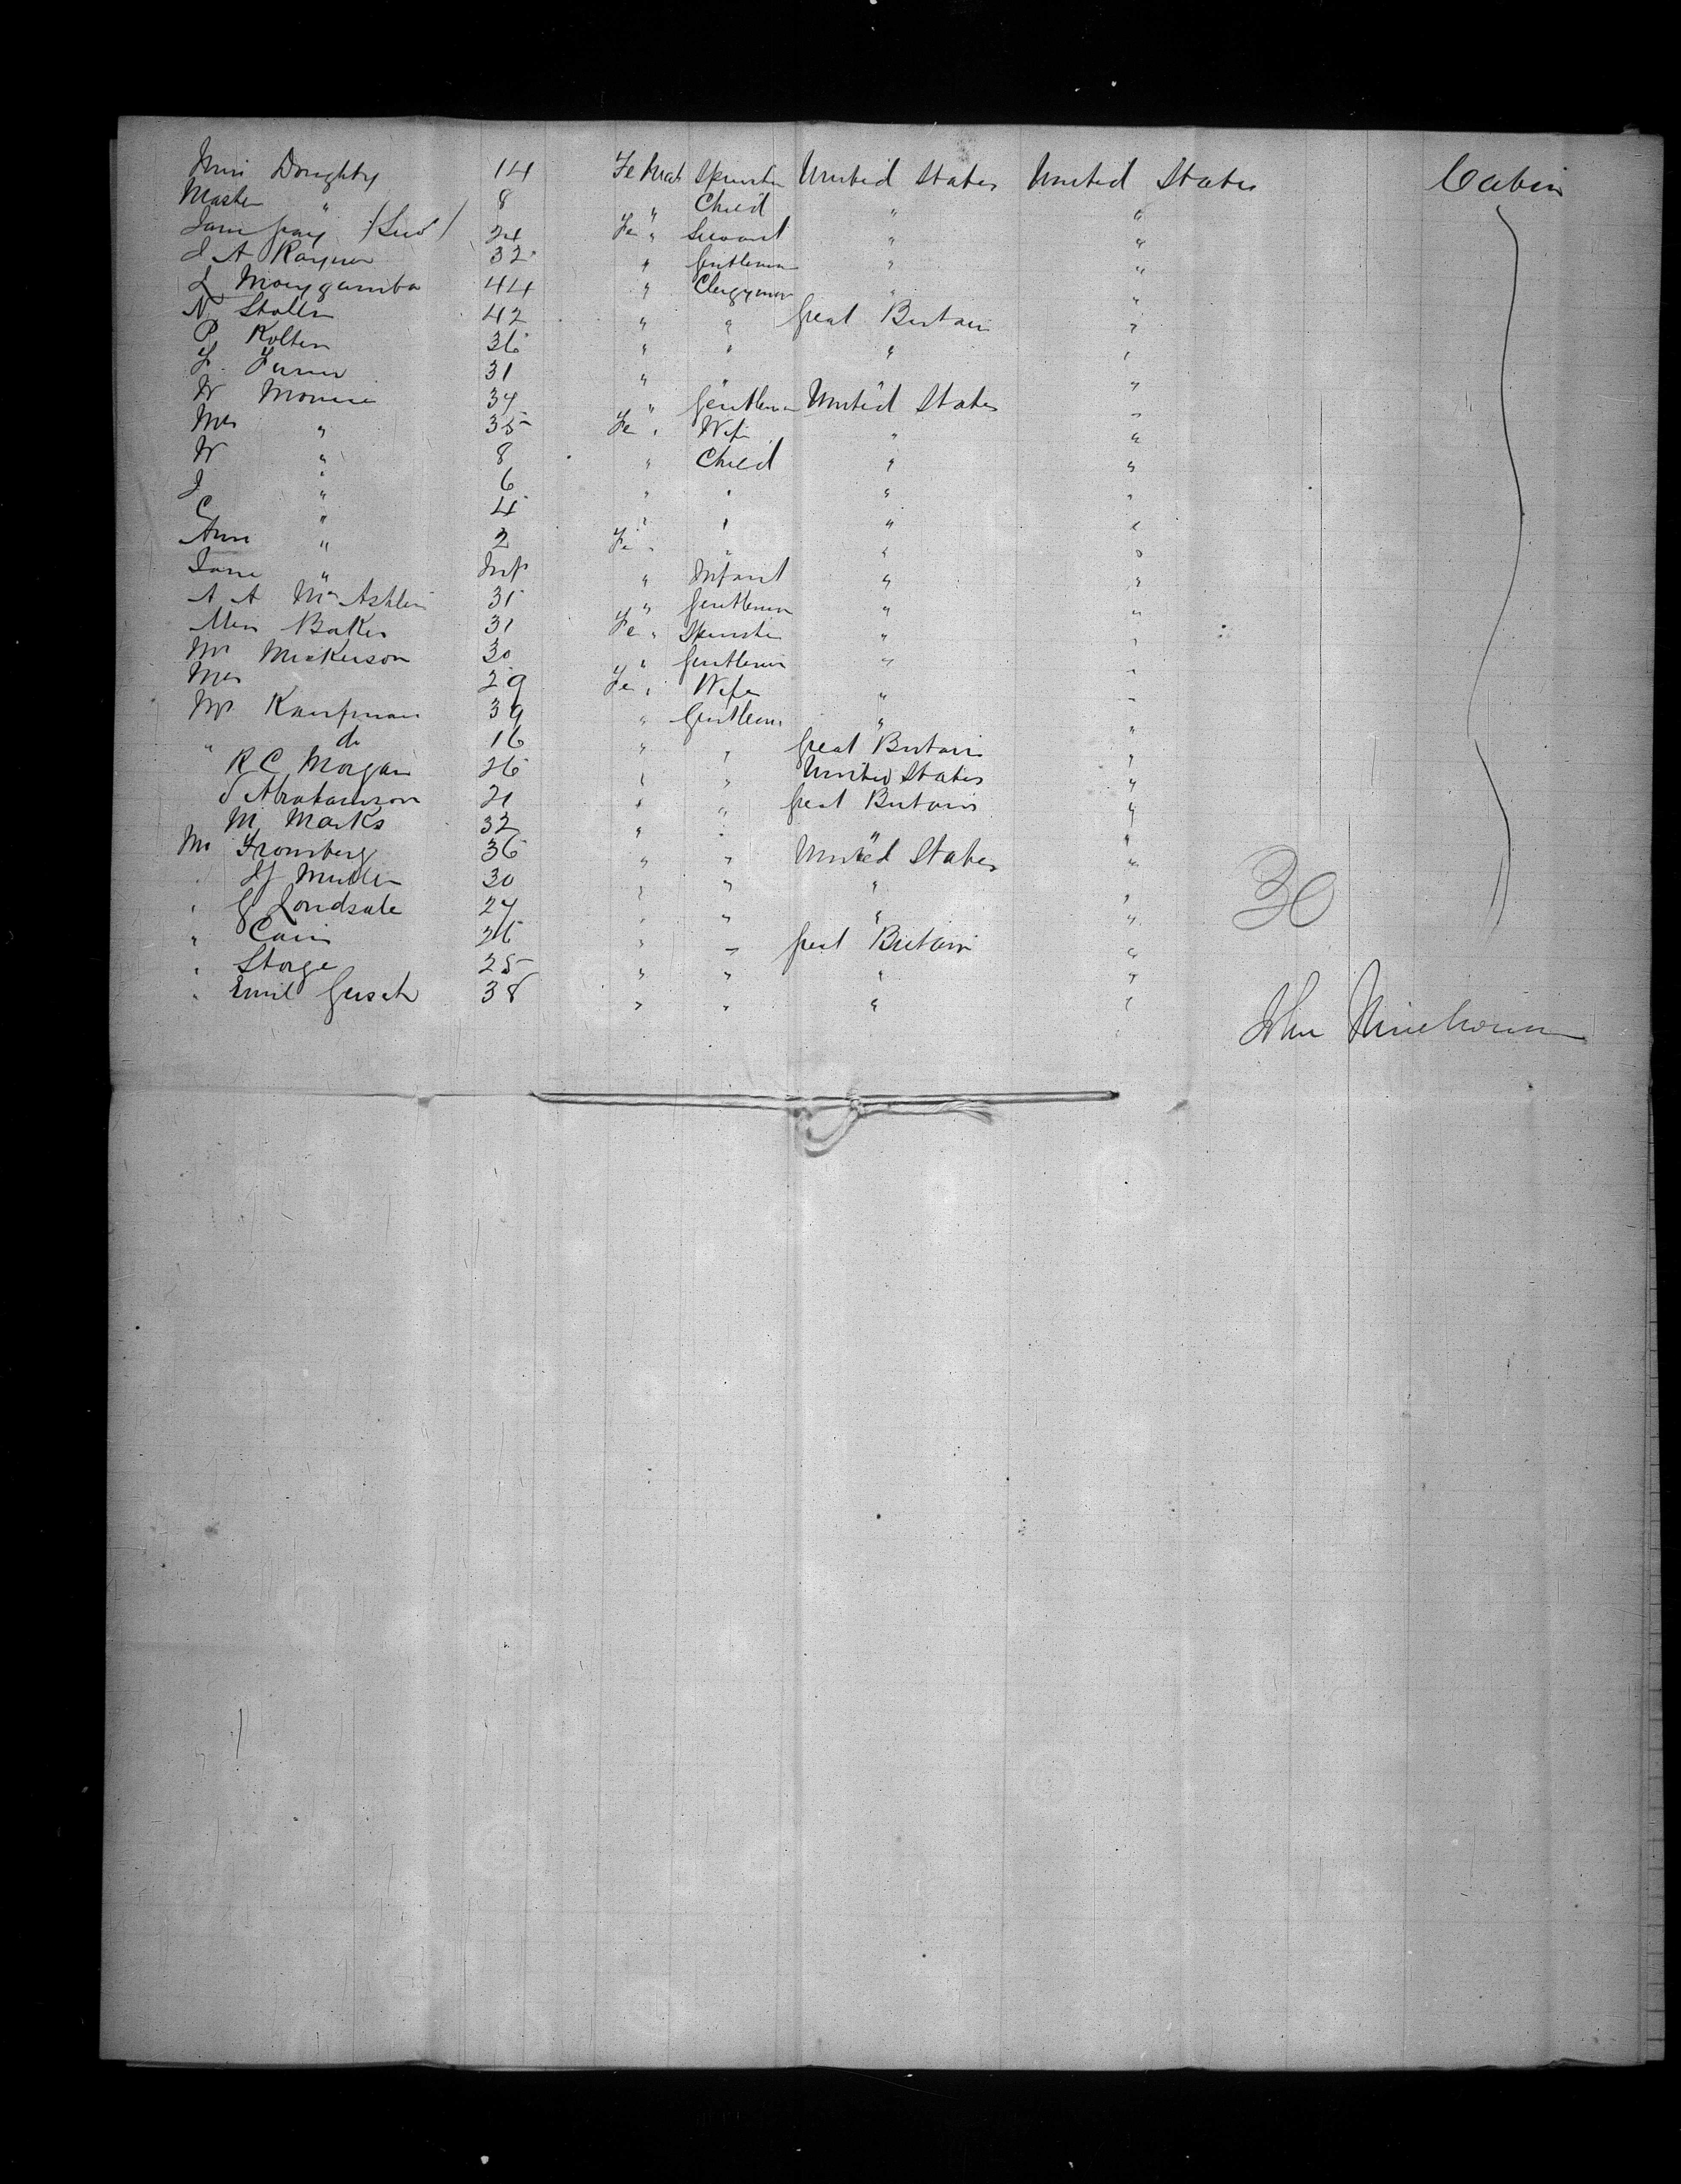 Miss Doughty 14 Fe Male Spinster United States United States Cabin
Master " 8 " Child " "
Jane 24 Fe " Servant " "
J A Raynor 32 " Gentleman " "
L 44 " Clergyman " "
N Stollen 42 " " Great Britain "
P Kolten 36 " " " "
F. Turner 31 " " " "
W Monroe 34 " Gentleman United States "
Mrs " 35 Fe " Wife " "
W " 8 " Child " "
J " 6 " " " "
C " 4 " " " "
Ann " 2 Fe " " " "
Jane " Inft " Infant " "
A A 31 " Gentleman " "
Miss Baker 31 Fe " Spinster " "
Mr Mickerson 30 " Gentleman " "
Mrs 29 Fe " Wife " "
Mr Kaufman 39 " Gentleman " "
" do 16 " " Great Britain "
R C Morgan 26 " " United States "
S Abrahamson 21 " " Great Britain "
M Marks 32 " " " "
Mr Fromberg 36 " " United States "
" H Muller 30 " " " "
" G Londsale 24 " " " "
" Cain 26 " " Great Britain "
" Storge 25 " " " "
" Emil 38 " " " "
30
John